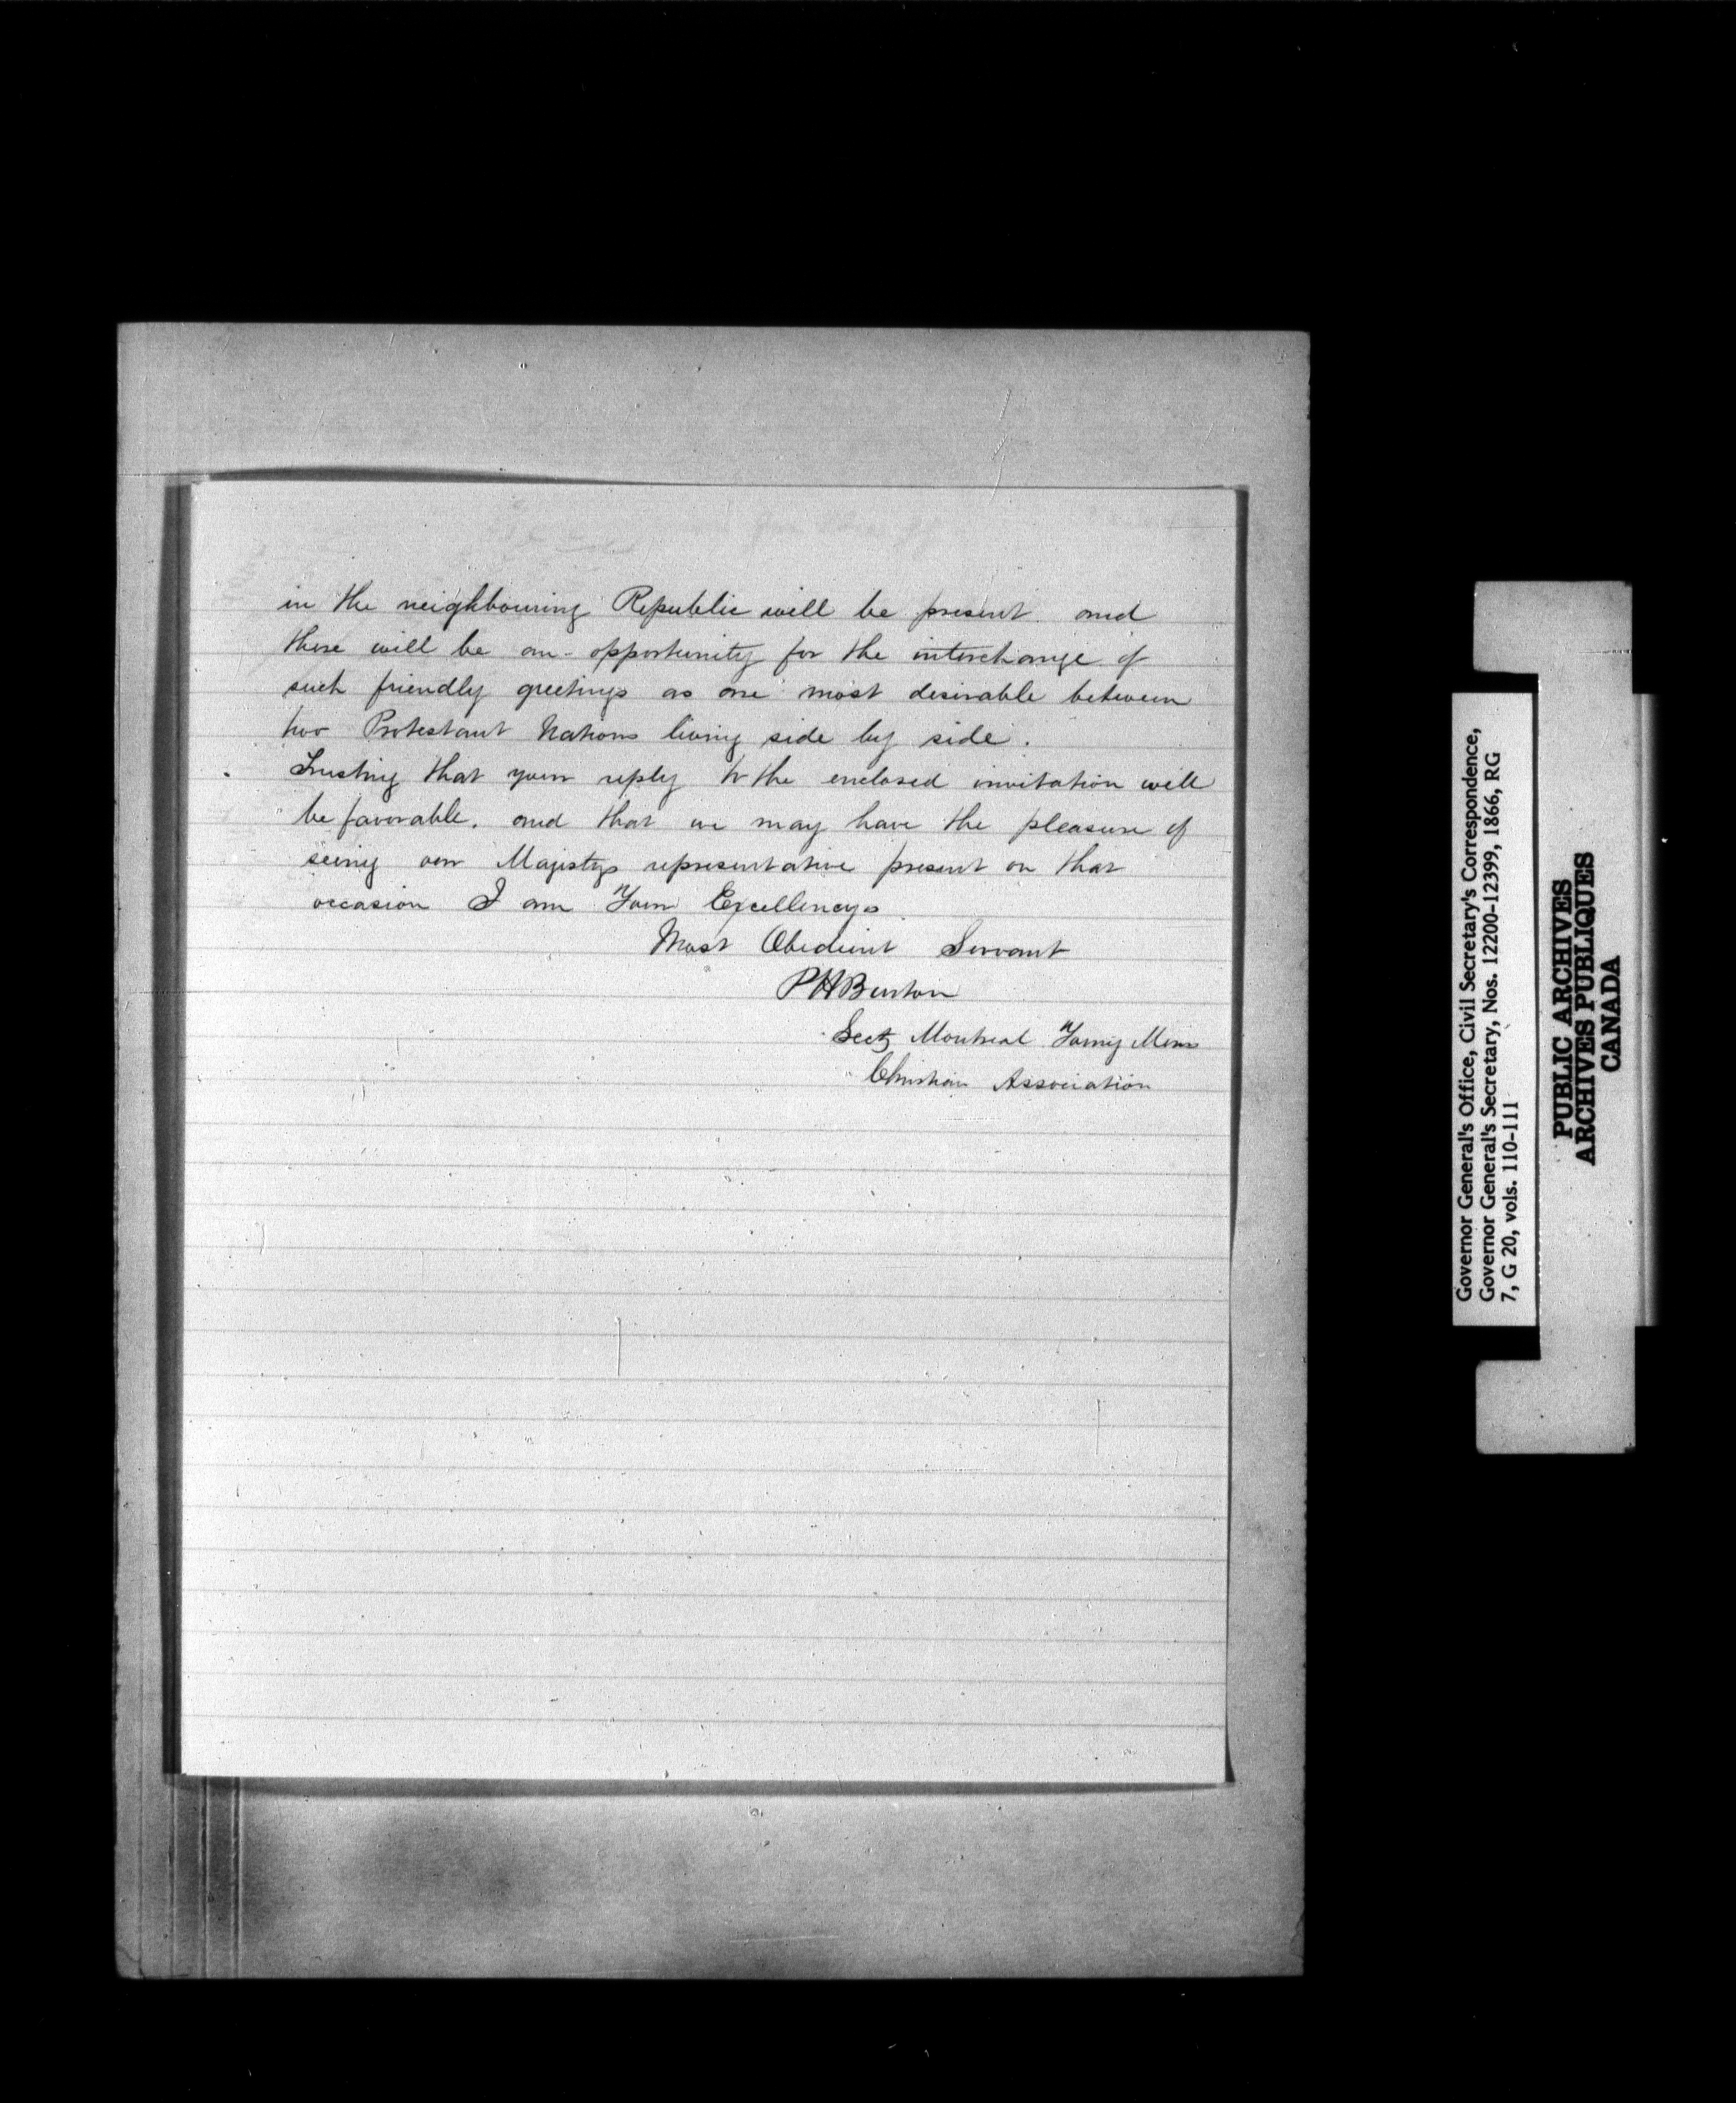 in the neighbouring Republic will be present. and
there will be an opportunity for the interchange of
such friendly greetings as are most desirable between
two Protestant Nations living side by side.
Trusting that your reply to the enclosed invitation will
be favorable. and that we may have the pleasure of
seeing our Majestys representative present on that
occasion I am Your Excellencys
Most Obedient Servant
PHBurton
Secty Montreal Young Mens
Christian Association
Governor General's Office, Civil Secretary's Correspondence,
Governor General's Secretary, Nos. 12200-12399, 1866, RG
7, G 20, vols. 110-111
PUBLIC ARCHIVES
ARCHIVES PUBLIQUES
CANADA